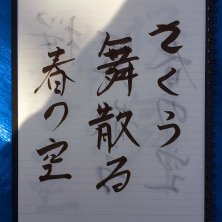 さくら
舞散る
春の空